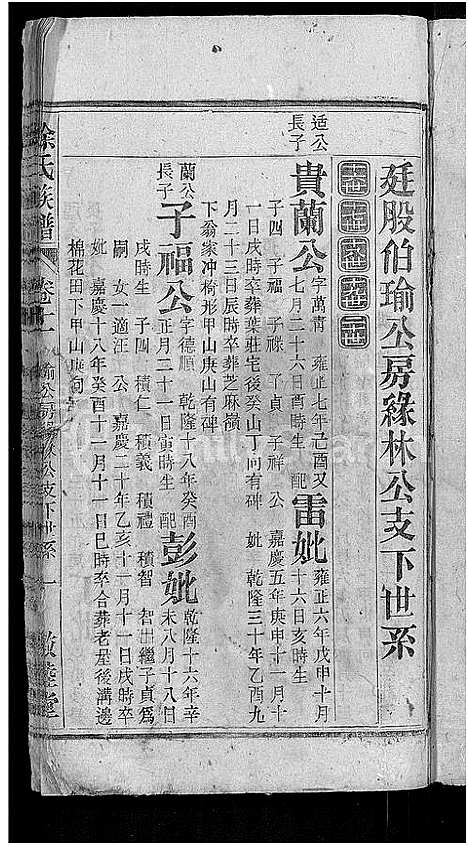 廷股伯瑜公房緣林公支下世系
适公
長子
貴蘭公
字萬青 雍正七年己酉又
七月二十六日酉時生 配
雷妣
雍正六年戊申十月
十六日亥時生
子四 子福 子祿 子貞 子祥 公 嘉慶五年庚申十一月十
一日戌時卒葬葉莊宅後癸山丁向有碑 妣 乾隆三十年乙酉九
月二十三日辰時卒葬芝麻嶺
下翁家冲椅形甲山庚山有碑
蘭公
長子
子福公
字德順 乾隆十八年癸酉
正月二十一日寅時生 配
彭妣
乾隆十六年辛
未八月十八日
戌時生 子四 積仁 積義 積禮 積智 智出繼子貞爲
嗣 女一適汪 公 嘉慶二十年乙亥十一月十一日戌時卒
妣 嘉慶十八年癸酉十一月十一日巳時卒合葬老屋後溝邊
棉花田下甲山庚向
徐氏族譜
卷十一
瑜公房緣林公支下世系 一
敦睦堂